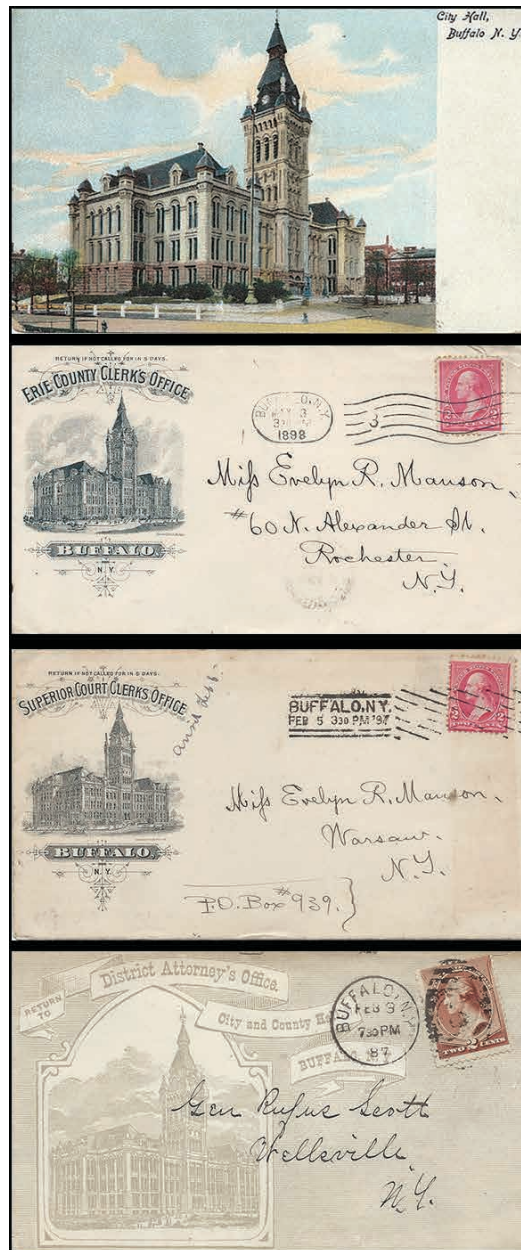 City Hall,
Buffalo N. Y.
RETURN IF NOT CALLED FOR IN 5 DAYS.
ERIE COUNTY CLERK'S OFFICE
BUFFALO,
N.Y.
BUFFALO, N.Y.
MAY 3
1898
3
2 2
TWO CENTS
Miss Evelyn R. Manson,
#60 N. Alexander St.
Rochester,
N.Y.
RETURN IF NOT CALLED FOR IN 5 DAYS.
SUPERIOR COURT CLERK'S OFFICE
BUFFALO,
N.Y.
BUFFALO, N.Y.
FEB 5 330 PM '97
2 2
TWO CENTS
Miss Evelyn R. Manson,
Warsaw,
N.Y.
P.O. Box #939.
RETURN
TO
District Attorney's Office
City and County
BUFFALO, N.Y.
BUFFALO, N.Y.
FEB 9
730 PM
87
TWO 2 CENTS
Gen Rufus Scott
Wellsville
N.Y.